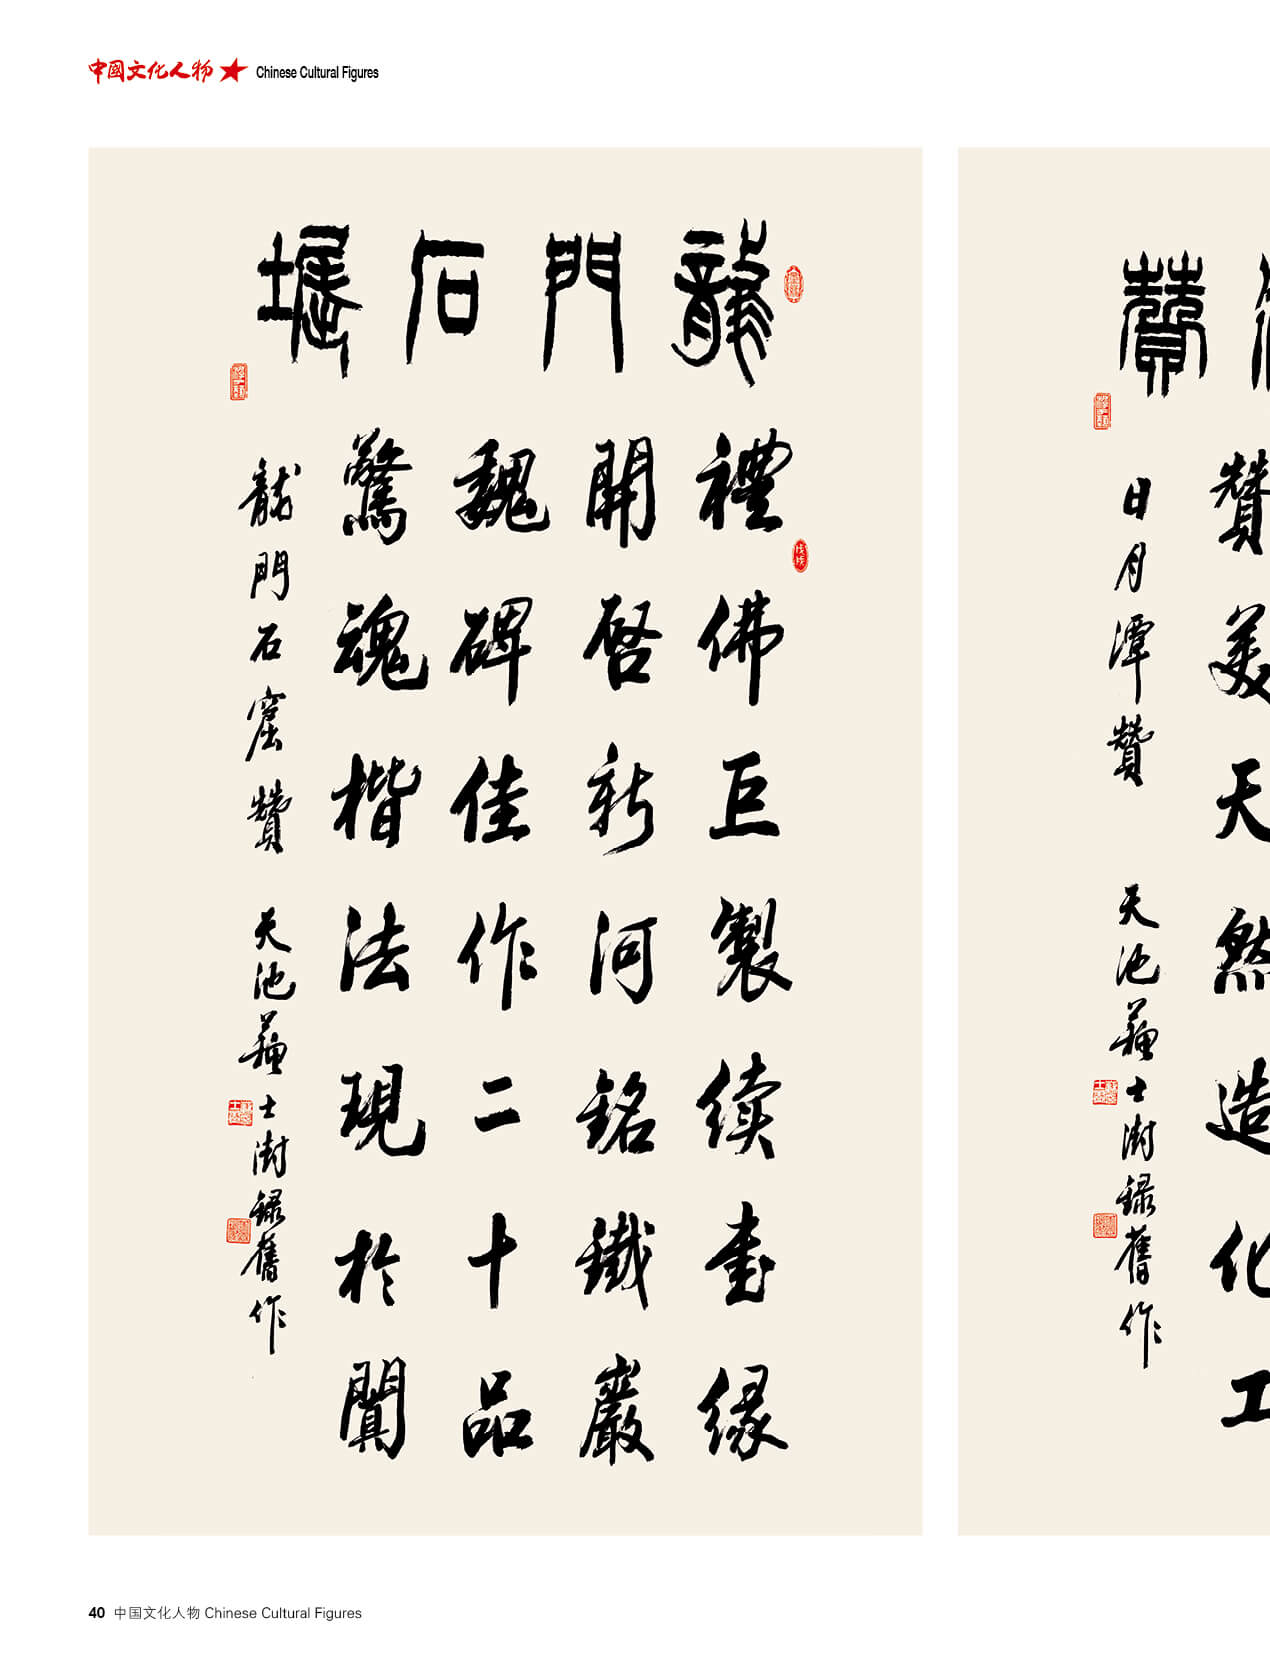 中國文化人物 Chinese Cultural Figures
龍門石
禮佛巨製续書缘
開啓新河銘鐵巖
魏碑佳作二十品
驚魂楷法現於間
龍門石窟贊 天池蘇士澍録舊作
贊
贊美天然造化工
日月潭贊 天池蘇士澍録舊作
40 中国文化人物 Chinese Cultural Figures